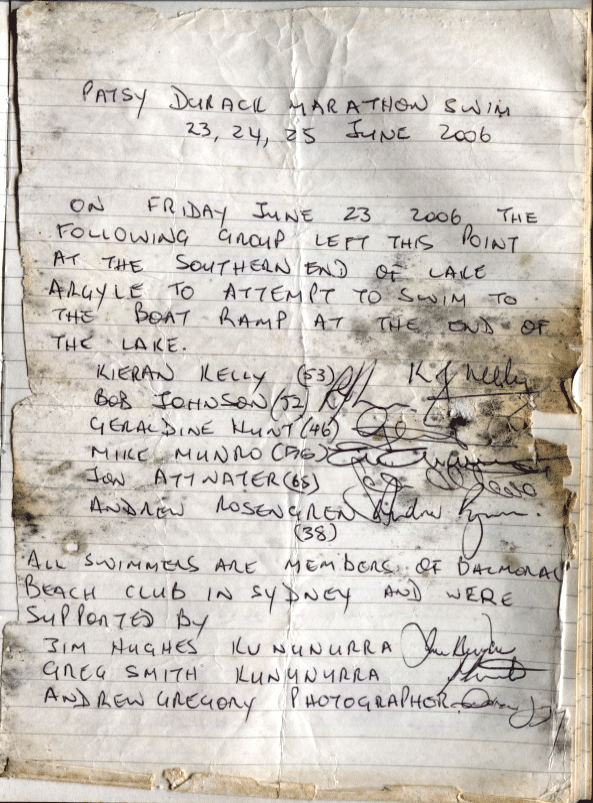 PATSY DURACK MARATHON SWIM
23, 24, 25 JUNE 2006
ON FRIDAY JUNE 23 2006 THE
FOLLOWING GROUP LEFT THIS POINT
AT THE SOUTHERN END OF LAKE
ARGYLE TO ATTEMPT TO SWIM TO
THE BOAT RAMP AT THE END OF
THE LAKE.
KIERAN KELLY (53) K J Kelly
BOB JOHNSON (52)
GERALDINE HUNT (46)
MIKE MUNRO
JON ATTWATER (65)
ANDREW ROSENGREN
(38)
ALL SWIMMERS ARE MEMBERS OF BALMORAL
BEACH CLUB IN SYDNEY AND WERE
SUPPORTED BY
JIM HUGHES KUNUNURRA
GREG SMITH KUNUNURRA
ANDREW GREGORY PHOTOGRAPHER